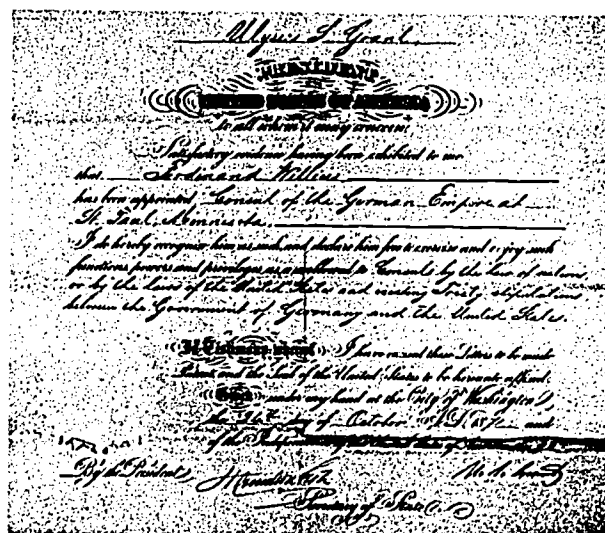 Ulysses S. Grant,
PRESIDENT
UNITED STATES OF AMERICA
to all whom it may concern:
Satisfactory evidence having been exhibited to me
that Ferdinand Willius
has been appointed Consul of the German Empire at
St. Paul, Minnesota,
I do hereby recognize him as such, and declare him free to exercise and enjoy such
functions, powers and privileges as are allowed to Consuls by the law of nations,
or by the laws of the United States and existing Treaty stipulations
between the Government of Germany and the United States.
In Testimony whereof, I have caused these Letters to be made
Patent, and the Seal of the United States to be hereunto affixed.
Given under my hand at the City of Washington,
the day of October A.D. 187 and
of the
By the President,
U. S. Grant
Secretary of State